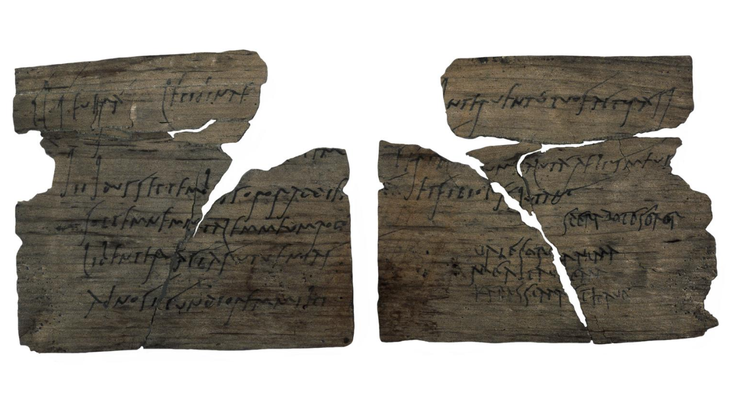 Cl Severa Lepidinae
iii Idus Septembr soror ad diem
sollemnem natalem meum rogo
libenter facias ut venias
ad nos iucundiorem mihi
interventu tuo factura si
Cerial uum saluta Aelius meus
et filiolus salutant
sperabo te soror
vale soror anima
mea ita valeam
karissima et have